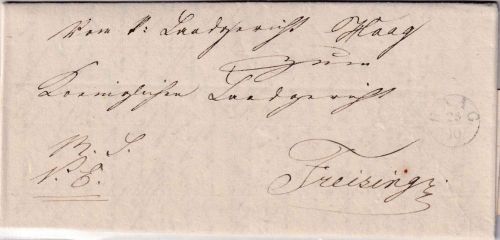 Vom k: Landgericht Haag
zum
Koeniglichen Landgericht
R. S.
Freising